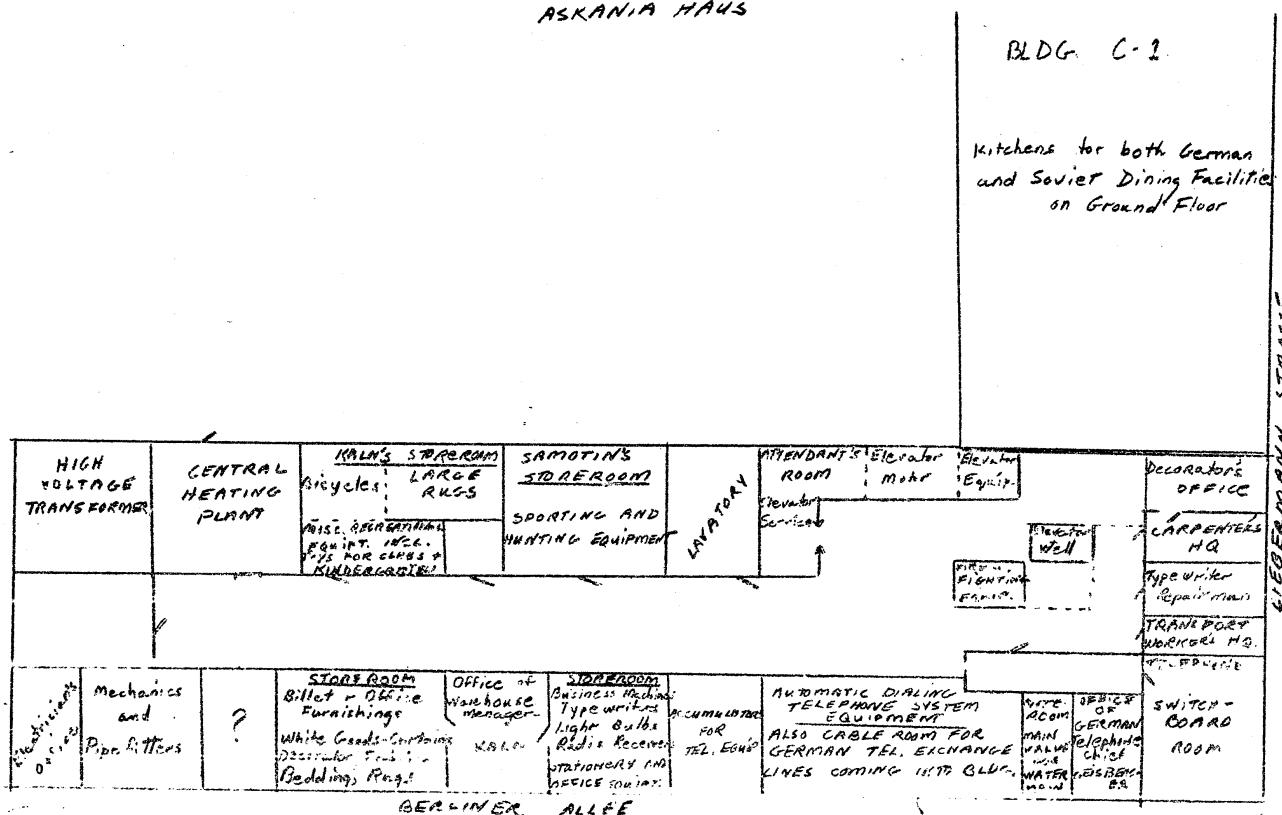 ASKANIA HAUS
BLDG. C-1
Kitchens for both German
and Soviet Dining Facilities
on Ground Floor
HIGH
VOLTAGE
TRANSFORMER
CENTRAL
HEATING
PLANT
KALN'S STOREROOM
Bicycles
LARGE
RUGS
MISC. RECREATIONAL
EQUIPT. INCL.
TOYS FOR CLUBS +
KINDERGARTEN
SAMOTIN'S
STOREROOM
SPORTING AND
HUNTING EQUIPMENT
LAVATORY
ATTENDANT'S
ROOM
Elevator
Services
Elevator
Motor
Elevator
Equip.
Elevator
Well
FIRE
FIGHTING
EQUIP.
Decorator's
OFFICE
CARPENTERS
HQ
Typewriter
Repairman
TRANSPORT
WORKER'S HQ.
TELEPHONE
SWITCH-
BOARD
ROOM
LIEBERMANN STRASSE
Electrician's
Office
Mechanics
and
Pipe fitters
?
STORE ROOM
Billet & Office
Furnishings
White Goods-Curtains
Decorator
Bedding, Rugs
Office of
Warehouse
Manager-
KALN
STOREROOM
Business Machines
Typewriters
Light Bulbs
Radio Receivers
STATIONERY AND
OFFICE EQUIPT.
ACCUMULATORS
FOR
TEL. EQUIP
AUTOMATIC DIALING
TELEPHONE SYSTEM
EQUIPMENT
ALSO CABLE ROOM FOR
GERMAN TEL. EXCHANGE
LINES COMING INTO BLDG.
ROOM
MAIN
VALVE
WATER
MAIN
OFFICE
OF
GERMAN
Telephone
Chief
BERLINER ALLEE